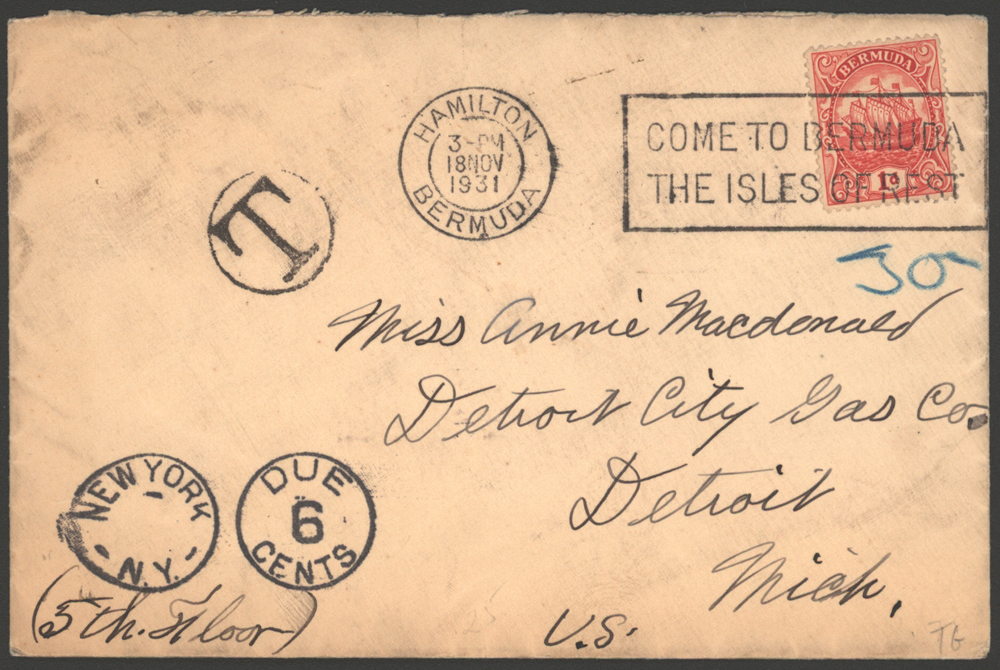 BERMUDA
1d
HAMILTON
3-PM
18NOV
1931
BERMUDA
COME TO BERMUDA
THE ISLES OF REST
T
30
Miss Annie Macdonald
Detroit City Gas Co.
Detroit
Mich.
U.S.
NEW YORK
N.Y.
DUE
6
CENTS
(5th. Floor)